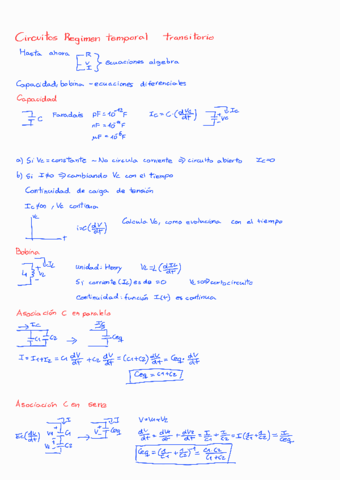 Circuitos Regimen temporal transitorio
Hasta ahora { R V I } ecuaciones algebra
Capacidad, bobina - ecuaciones diferenciales
Capacidad
C Faradals pF = 10⁻¹²F Ic = C·(dVc/dt) Ic + Vc
nF = 10⁻⁹F
μF = 10⁻⁶F
a) Si Vc = constante - No circula corriente ⇒ circuito abierto Ic=0
b) Si I≠0 ⇒ cambiando Vc con el tiempo
Continuidad de caiga de tensión
Ic≠∩, Vc continua
Vc t ic=c(dV/dt) Calcula Vc, como evoluciona con el tiempo
Bobina
L VL unidad: Henry VL = L(dIL/dt)
Si corriente (IL) es de =0 VL=0⇒ cortocircuito
Continuidad: función I(t) es continua
Asociación C en paralelo
Ic C1 C2 → Ic Ceq
I = I1+I2 = C1 dV/dt + C2 dV/dt = (C1+C2) dV/dt = Ceq · dV/dt
Ceq = C1+C2
Asociacion C en serie
I V1 C1 V2 C2 → I V Ceq V=V1+V2
dV/dt = dV1/dt + dV2/dt = I/C1 + I/C2 = I(1/C1 + 1/C2) = I/Ceq
Ceq = (1/C1 + 1/C2)⁻¹ = C1·C2/C1+C2